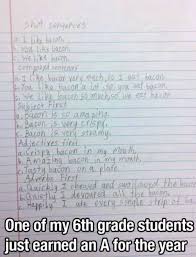 Shot sentences
a. I like bacon.
b. You like bacon.
c. We like bacon.
compound sentences
a. I like bacon very much, so I eat bacon.
b. You like bacon a lot, so you eat bacon.
c. We like bacon so much, so we eat bacon
Subject first
a. Bacon is so amazing.
b. Bacon is very crispy.
c. Bacon is very steamy.
Adjectives first
a. Crispy bacon in my mouth.
b. Amazing bacon in my mouth.
c. Tasty bacon on a plate.
Adverbs first
a. Quickly I chewed and swallowed the bacon
b. Quietly I devoured all the bacon.
I ate every single strip of
One of my 6th grade students
just earned an A for the year